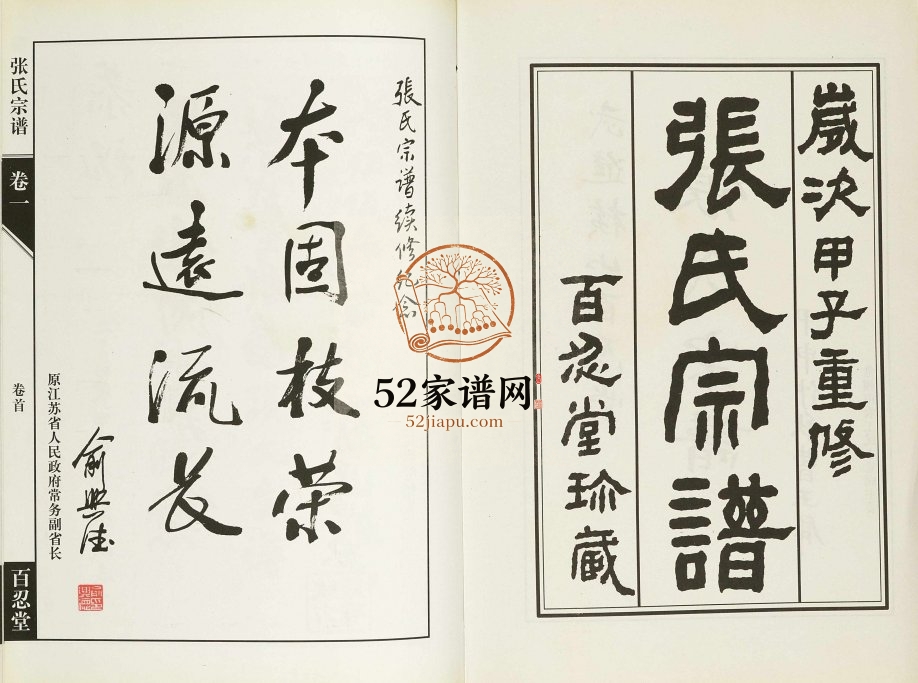 歲次甲子重修
張氏宗譜
百忍堂珍藏
張氏宗谱续修纪念
本固枝荣
源遠流长
俞兴德
原江苏省人民政府常务副省长
张氏宗谱
卷一
卷首
百忍堂
52家谱网
52jiapu.com